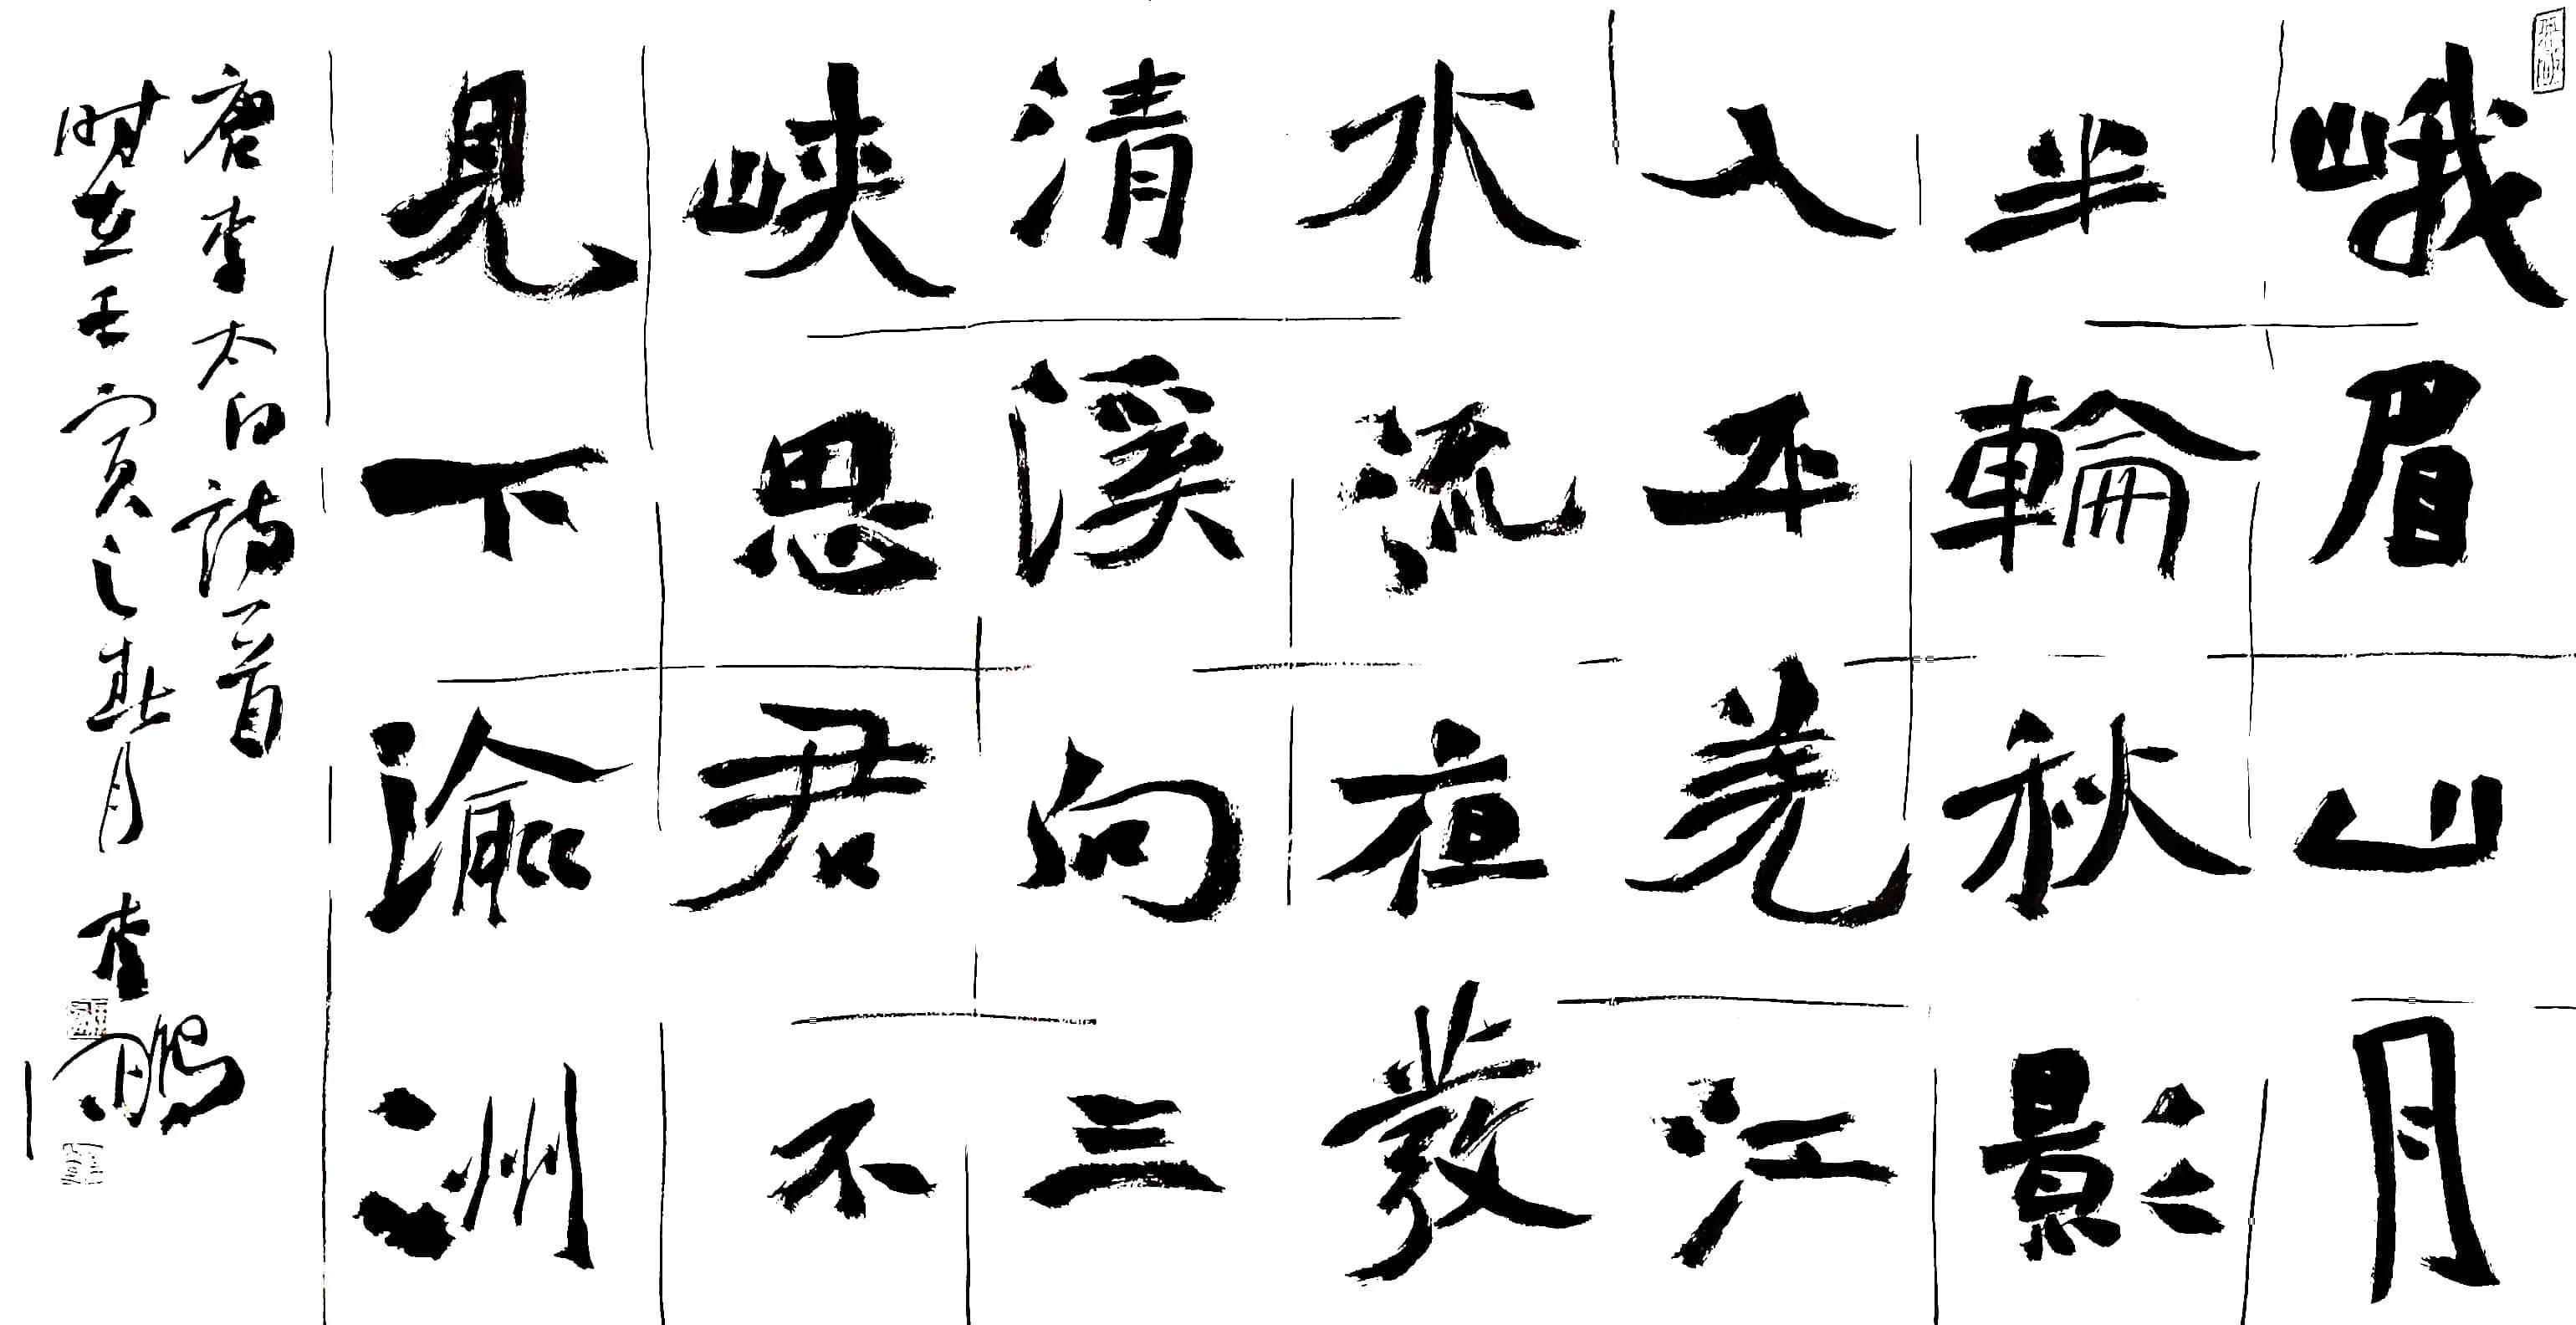 峨眉山月
半輪秋影
入平羌江
水流夜發
清溪向三
峽思君不
見下渝洲
唐李太白詩一首
時在壬寅之春月李鵬